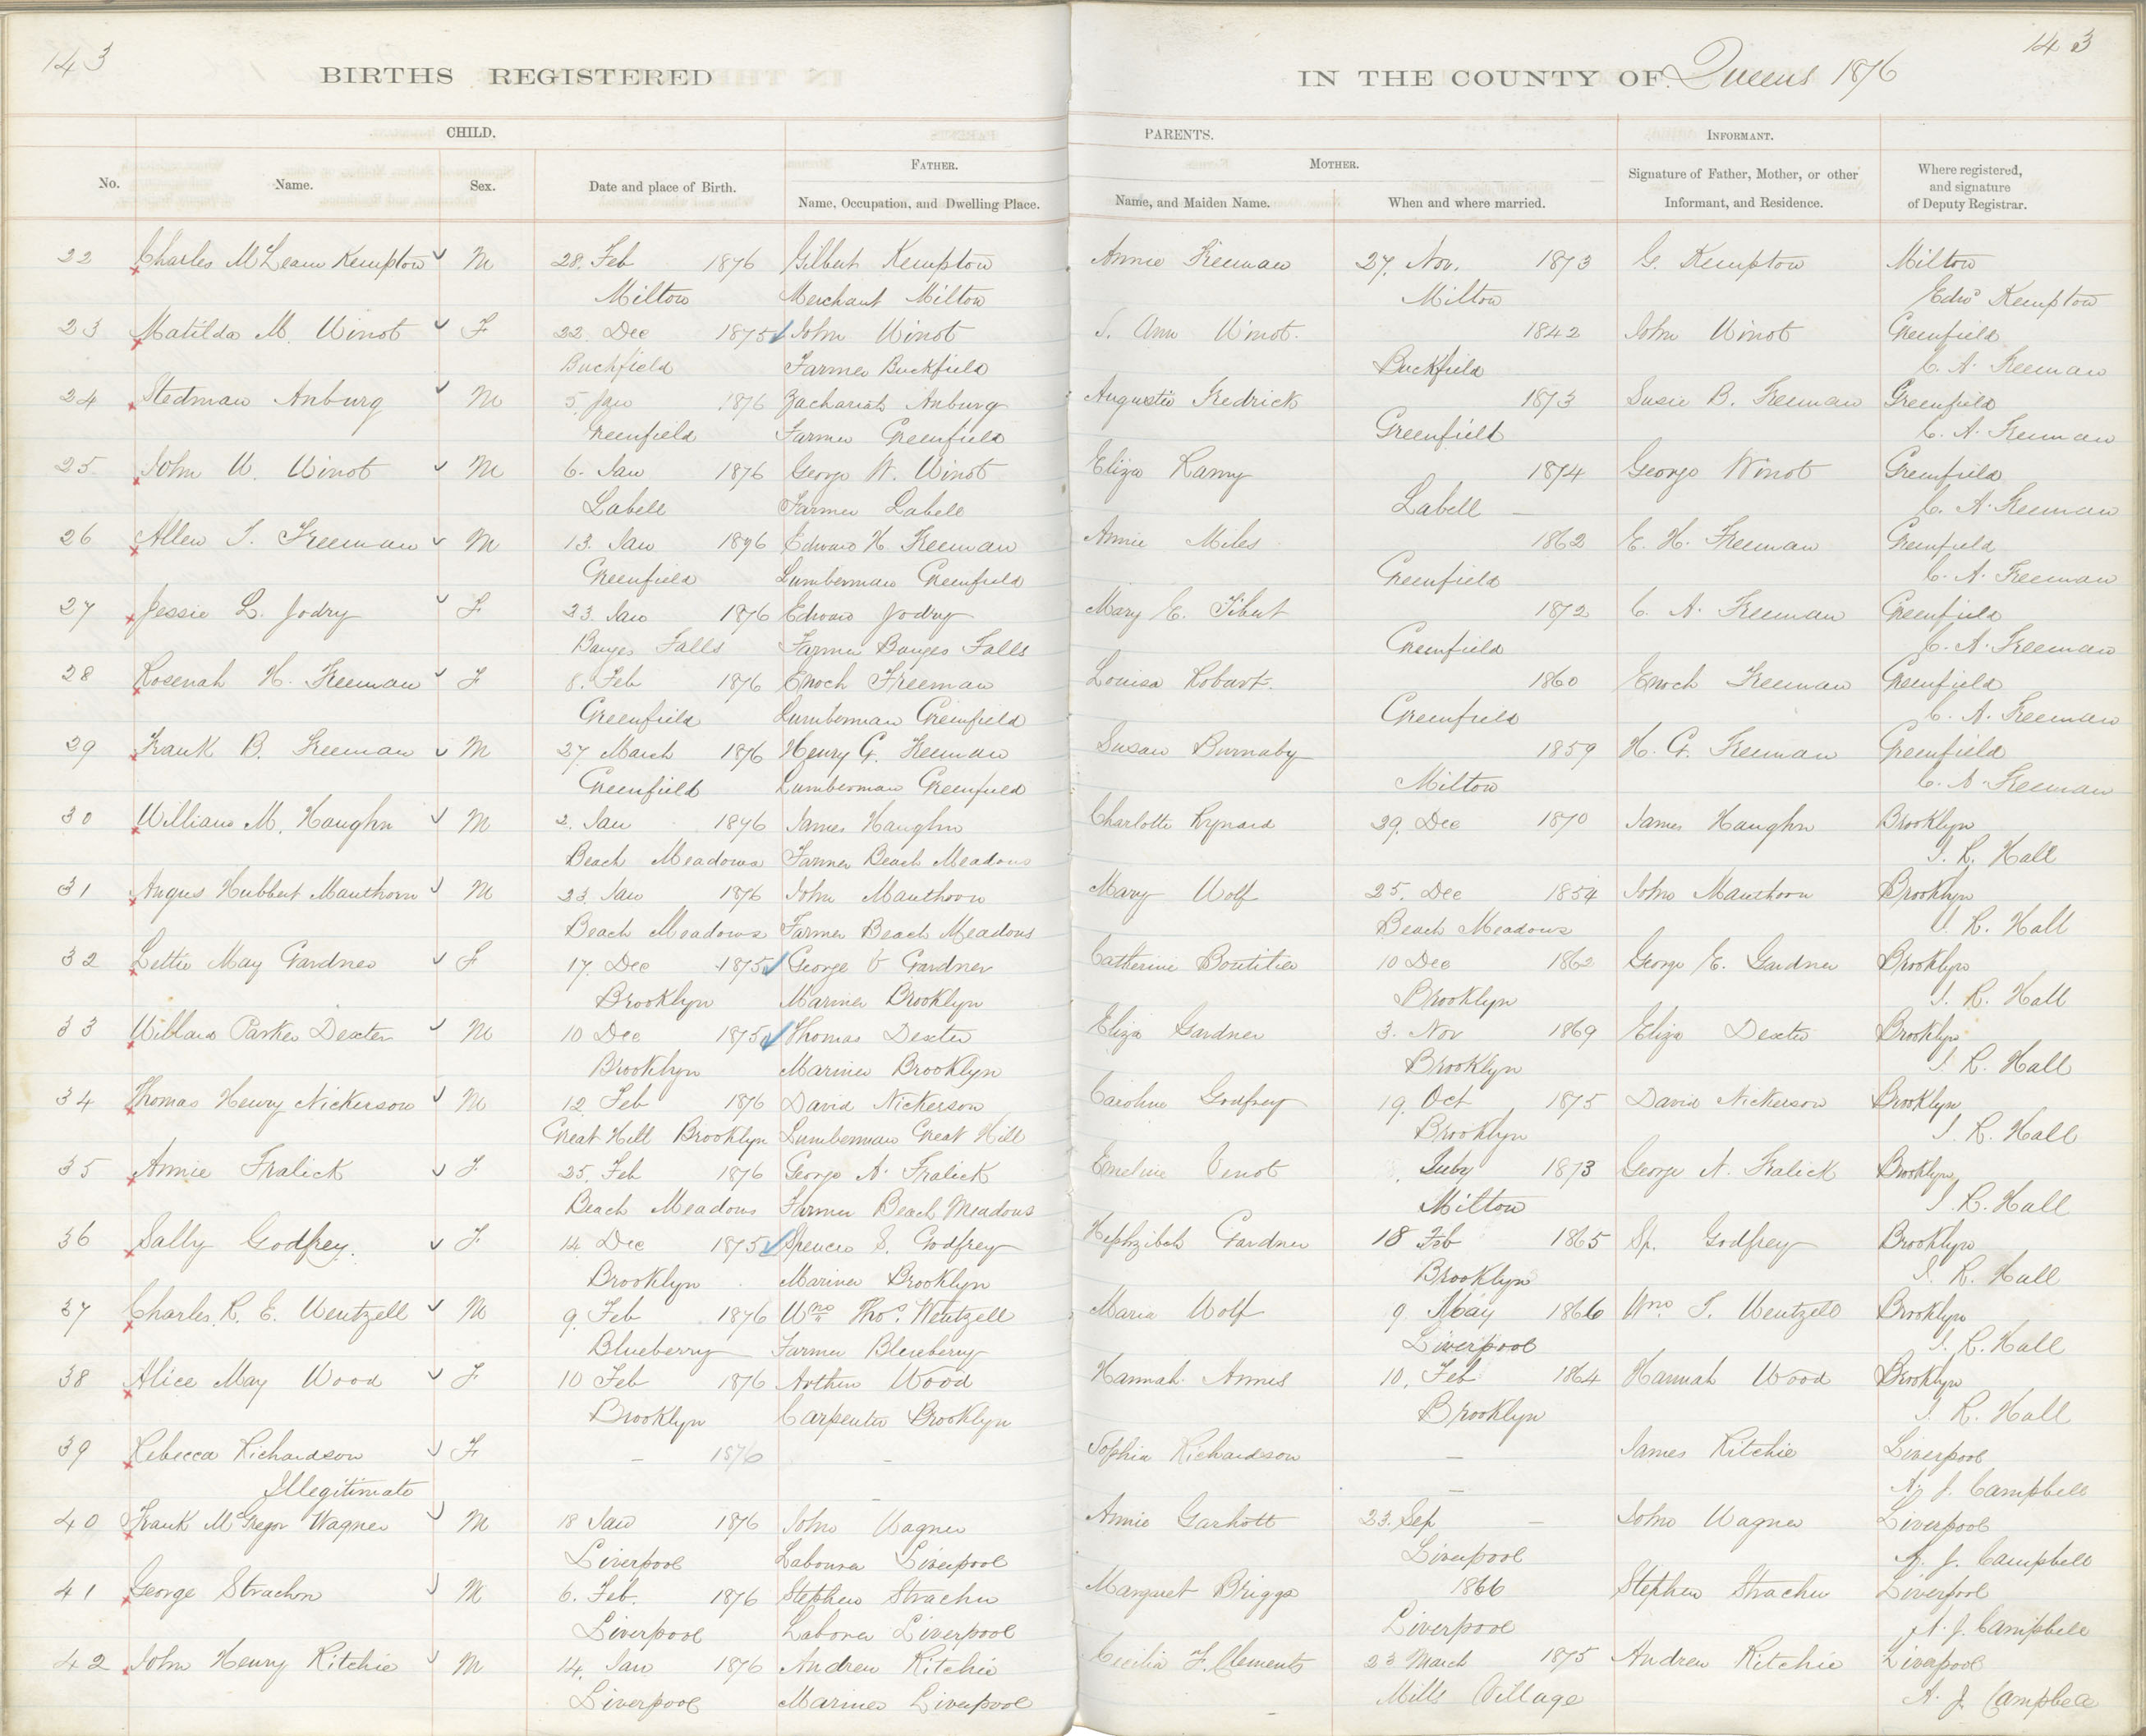 143
143
BIRTHS REGISTERED
IN THE COUNTY OF Queens 1876
CHILD.
PARENTS.
INFORMANT.
No.
Name.
Sex.
Date and place of Birth.
FATHER.
Name, Occupation, and Dwelling Place.
MOTHER.
Name, and Maiden Name.
When and where married.
Signature of Father, Mother, or other
Informant, and Residence.
Where registered,
and signature
of Deputy Registrar.
22 Charles McLearn Kempton M 28. Feb 1876 Gilbert Kempton Annie Freeman 27. Nov. 1873 G. Kempton Milton
Milton Merchant Milton Milton Edwd Kempton
23 Matilda M. Winot F 22. Dec 1875 John Winot S. Ann Winot. 1842 John Winot Greenfield
Buckfield Farmer Buckfield Buckfield C. A. Freeman
24 Stedman Anburg M 5. Jan 1876 Zachariah Anburg Augusta Fredrick 1873 Susie B. Freeman Greenfield
Greenfield Farmer Greenfield Greenfield C. A. Freeman
25 John W. Winot M 6. Jan 1876 George W. Winot Eliza Ramy 1874 George Winot Greenfield
Labell Farmer Labell Labell C. A. Freeman
26 Allen T. Freeman M 13. Jan 1876 Edward H Freeman Annie Miles 1862 E. H. Freeman Greenfield
Greenfield Lumberman Greenfield Greenfield C. A. Freeman
27 Jessie L. Jodry F 23. Jan 1876 Edward Jodry Mary E. Tibert 1872 C. A. Freeman Greenfield
Banges Falls Farmer Banges Falls Greenfield C. A. Freeman
28 Rosenah H. Freeman F 8. Feb 1876 Enoch Freeman Louisa Robart. 1860 Enoch Freeman Greenfield
Greenfield Lumberman Greenfield Greenfield C. A. Freeman
29 Frank B. Freeman M 27. March 1876 Henry G. Freeman Susan Burnaby 1859 H. G. Freeman Greenfield
Greenfield Lumberman Greenfield Milton C. A. Freeman
30 William M. Haughn M 2. Jan 1876 James Haughn Charlotte Rynard 29. Dec 1870 James Haughn Brooklyn
Beach Meadows Farmer Beach Meadows J. R. Hall
31 Angus Hubbert Manthorn M 23. Jan 1876 John Manthorn Mary Wolf 25. Dec 1854 John Manthorn Brooklyn
Beach Meadows Farmer Beach Meadows Beach Meadows J. R. Hall
32 Lettie May Gardner F 17. Dec 1875 George E Gardner Catherine Boutilier 10 Dec 1862 George E. Gardner Brooklyn
Brooklyn Mariner Brooklyn Brooklyn J. R. Hall
33 Willard Parker Dexter M 10 Dec 1875 Thomas Dexter Eliza Gardner 3. Nov 1869 Eliza Dexter Brooklyn
Brooklyn Mariner Brooklyn Brooklyn J. R. Hall
34 Thomas Henry Nickerson M 12. Feb 1876 David Nickerson Caroline Godfrey 19. Oct 1875 David Nickerson Brooklyn
Great Hill Brooklyn Lumberman Great Hill Brooklyn J. R. Hall
35 Annie Fralick F 25. Feb 1876 George A. Fralick Emeline Vinot July 1873 George A. Fralick Brooklyn
Beach Meadows Farmer Beach Meadows Milton J. R. Hall
36 Sally Godfrey. F 14. Dec 1875 Spencer S. Godfrey Hephzibah Gardner 18 Feb 1865 Sp. Godfrey Brooklyn
Brooklyn Mariner Brooklyn Brooklyn J. R. Hall
37 Charles R. E. Wentzell M 9. Feb 1876 Wm Thos. Wentzell Maria Wolf 9. May 1866 Wm T. Wentzell Brooklyn
Blueberry Farmer Blueberry Liverpool J. R. Hall
38 Alice May Wood F 10 Feb 1876 Arthur Wood Hannah Annis 10. Feb 1864 Hannah Wood Brooklyn
Brooklyn Carpenter Brooklyn Brooklyn J. R. Hall
39 Rebecca Richardson F – 1876 – Sophia Richardson – James Ritchie Liverpool
Illegitimate – – A. J. Campbell
40 Frank McGregor Wagner M 18 Jan 1876 John Wagner Annie Garhott 23. Sep – John Wagner Liverpool
Liverpool Labourer Liverpool Liverpool A. J. Campbell
41 George Strachon M 6. Feb. 1876 Stephen Strachn Margaret Briggs 1866 Stephen Strachn Liverpool
Liverpool Laborer Liverpool Liverpool A. J. Campbell
42 John Henry Ritchie M 14. Jan 1876 Andrew Ritchie Cecilia F. Clements 23 March 1875 Andrew Ritchie Liverpool
Liverpool Mariner Liverpool Mills Village A. J. Campbell